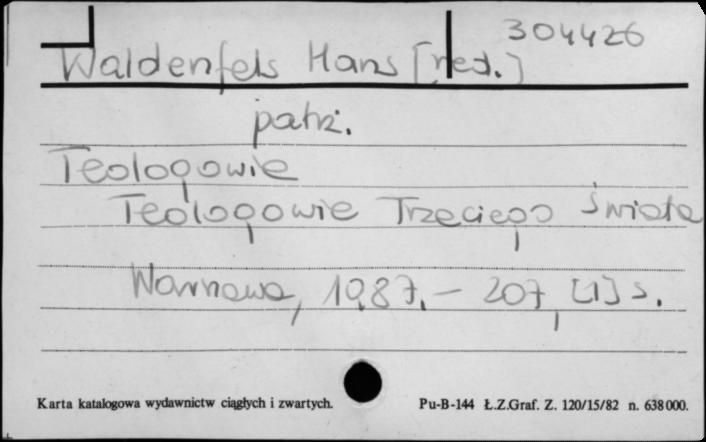 304426
Waldenfels Hans [red.]
patrz.
Teologowie
Teologowie Trzeciego Świata
Warszawa, 1987. – 207, [1] s.
Karta katalogowa wydawnictw ciągłych i zwartych. Pu-B-144 Ł.Z.Graf. Z. 120/15/82 n. 638000.